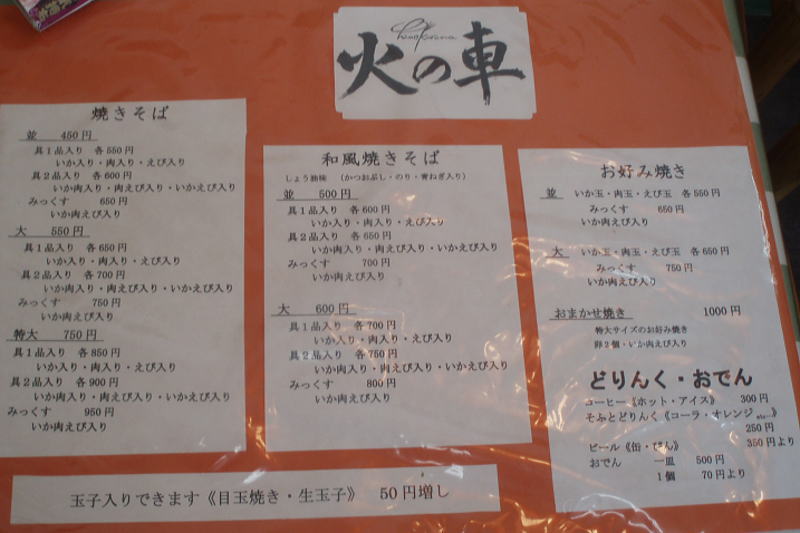 火の車
焼きそば
並 450円
具1品入り 各550円
いか入り・肉入り・えび入り
具2品入り 各600円
いか肉入り・肉えび入り・いかえび入り
みっくす 650円
いか肉えび入り
大 550円
具1品入り 各650円
いか入り・肉入り・えび入り
具2品入り 各700円
いか肉入り・肉えび入り・いかえび入り
みっくす 750円
いか肉えび入り
特大 750円
具1品入り 各850円
いか入り・肉入り・えび入り
具2品入り 各900円
いか肉入り・肉えび入り・いかえび入り
みっくす 950円
いか肉えび入り
和風焼きそば
しょう油味 (かつおぶし・のり・青ねぎ入り)
並 500円
具1品入り 各600円
いか入り・肉入り・えび入り
具2品入り 各650円
いか肉入り・肉えび入り・いかえび入り
みっくす 700円
いか肉えび入り
大 600円
具1品入り 各700円
いか入り・肉入り・えび入り
具2品入り 各750円
いか肉入り・肉えび入り・いかえび入り
みっくす 800円
いか肉えび入り
お好み焼き
並 いか玉・肉玉・えび玉 各550円
みっくす 650円
いか肉えび入り
大 いか玉・肉玉・えび玉 各650円
みっくす 750円
いか肉えび入り
おまかせ焼き 1000円
特大サイズのお好み焼き
卵2個・いか肉えび入り
どりんく・おでん
コーヒー《ホット・アイス》 300円
そふとどりんく《コーラ・オレンジ etc...》
250円
ビール《缶・びん》 350円より
おでん 一皿 500円
1個 70円より
玉子入りできます《目玉焼き・生玉子》 50円増し